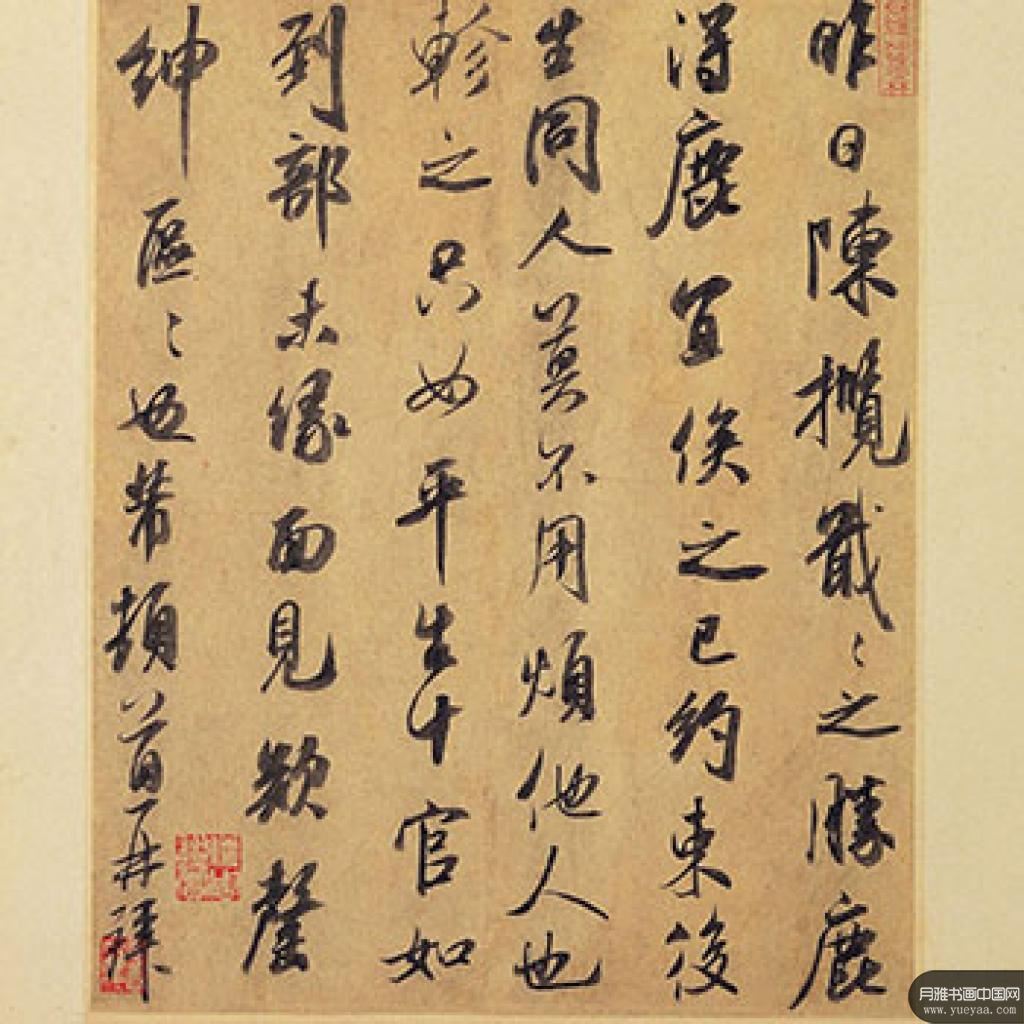 昨日陳攬戢戢之勝鹿
得鹿宜俟之已約束後
生同人莫不用煩他人也
軫之只如平生十官如
到部未緣面見欵罄
紳區區也芾頓首再拜
月雅书画中国网
www.yueyaa.com